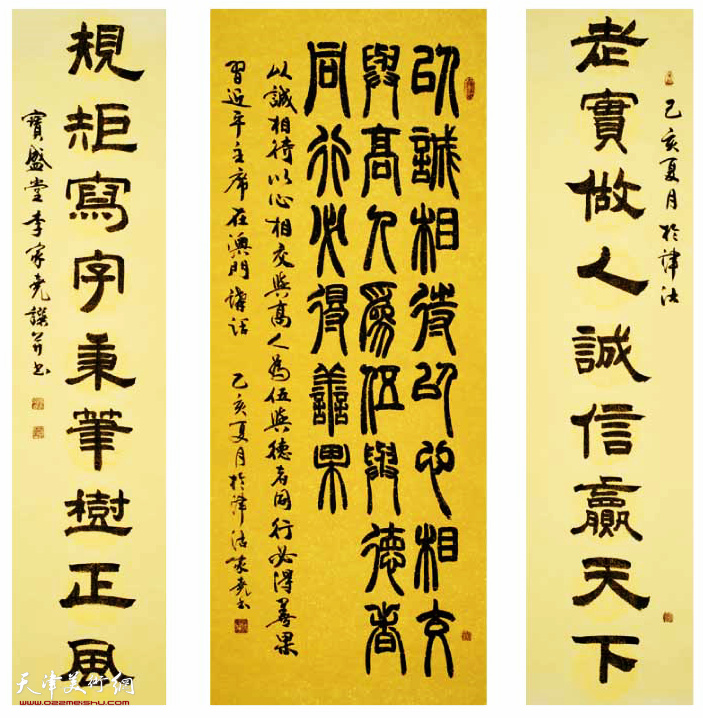 乙亥夏月於津沽
老實做人誠信贏天下
以誠相待以心相交
與高人為伍與德者
同行必得善果
以誠相待以心相交與高人為伍與德者同行必得善果
習近平主席在澳門講話 乙亥夏月於津沽家堯书
規矩寫字秉筆樹正風
寶盛堂李家堯譔并书
天津美術網
www.022meishu.com